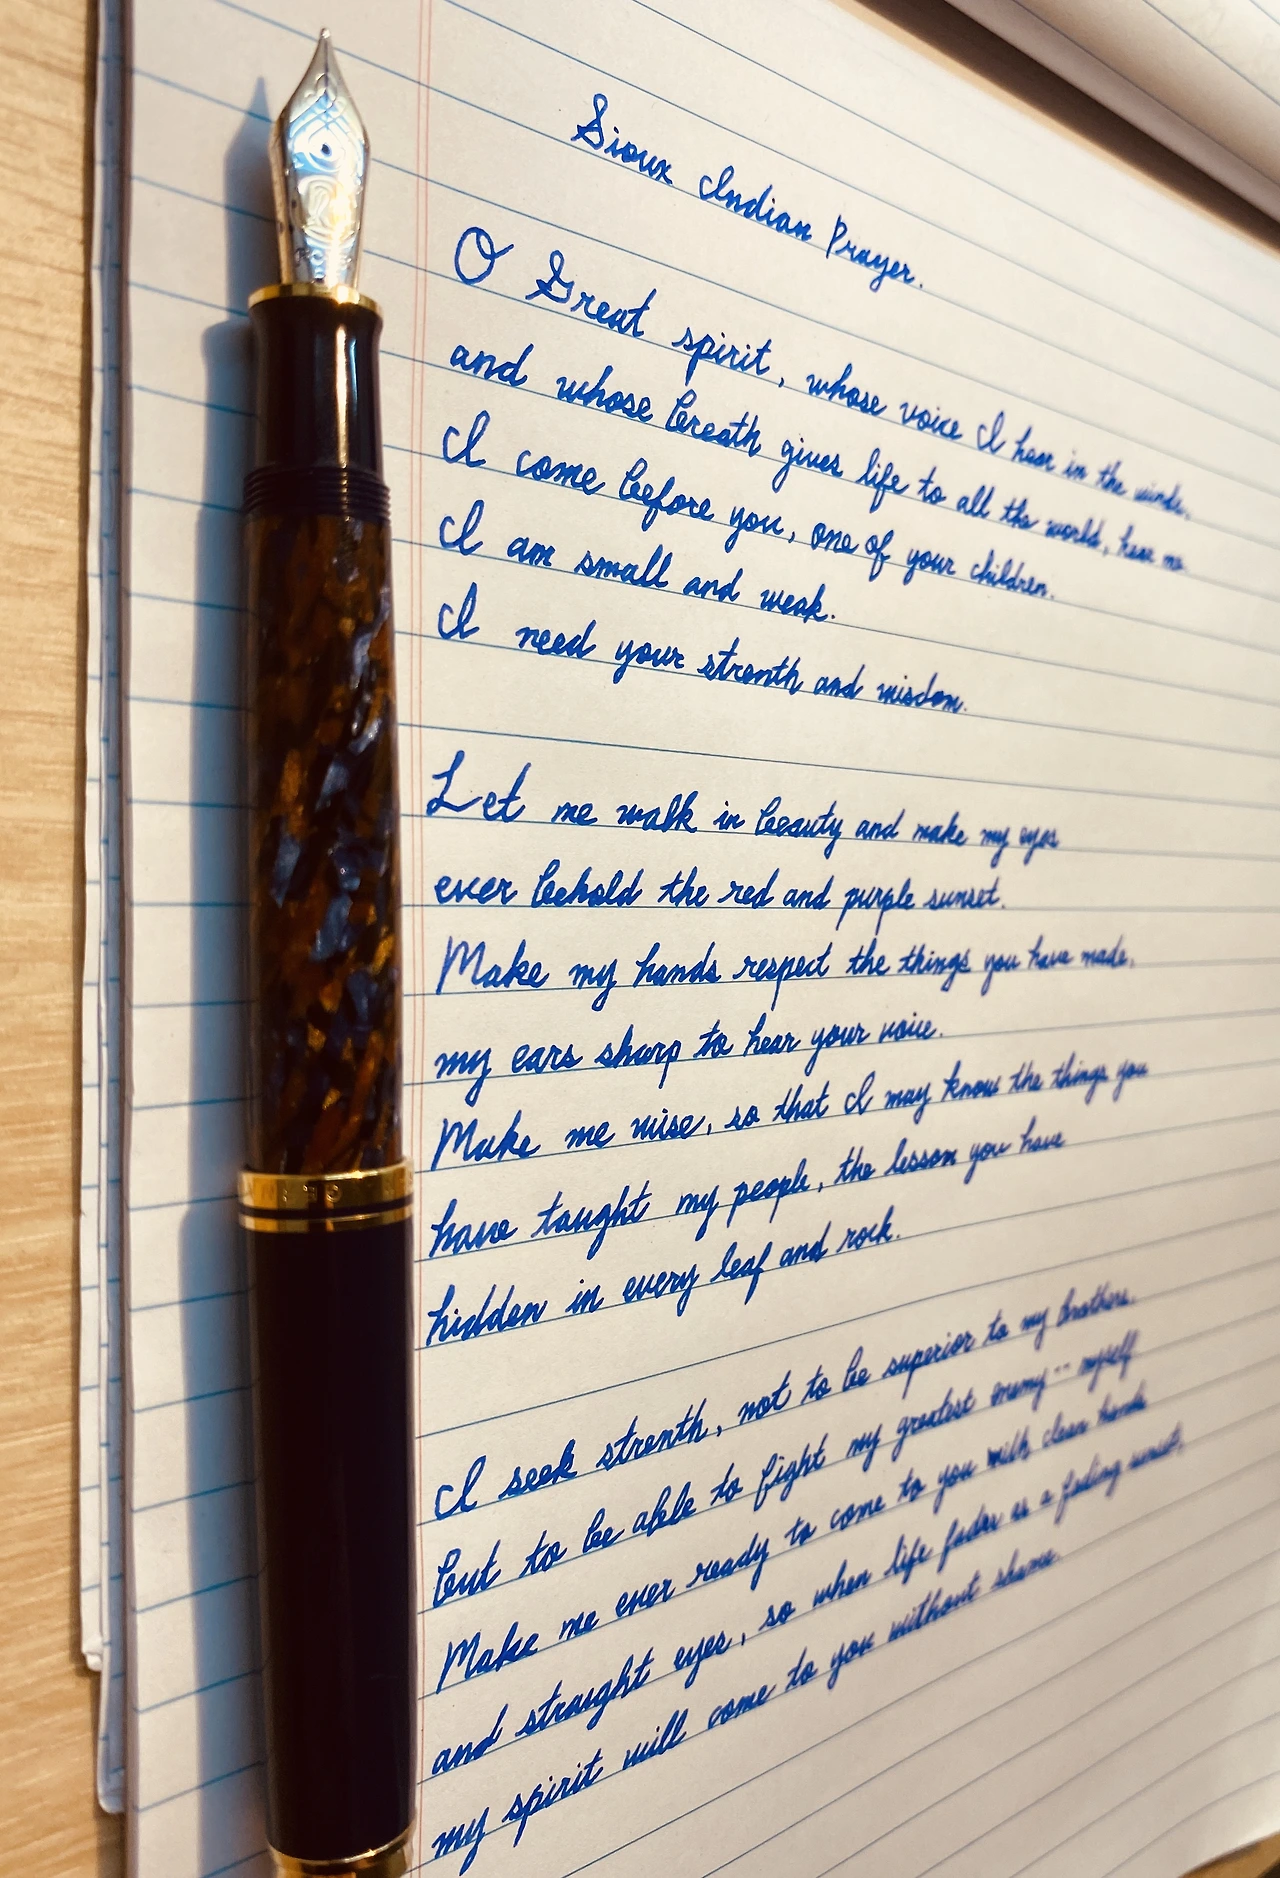 Sioux Indian Prayer.
O Great spirit, whose voice I hear in the winds,
and whose breath gives life to all the world, hear me
I come before you, one of your children.
I am small and weak.
I need your strenth and wisdom.
Let me walk in beauty and make my eyes
ever behold the red and purple sunset.
Make my hands respect the things you have made,
my ears sharp to hear your voice.
Make me wise, so that I may know the things you
have taught my people, the lesson you have
hidden in every leaf and rock.
I seek strenth, not to be superior to my brothers.
but to be able to fight my greatest enemy -- myself
Make me ever ready to come to you with clean hands
and straight eyes, so when life fades as a fading sunset,
my spirit will come to you without shame.